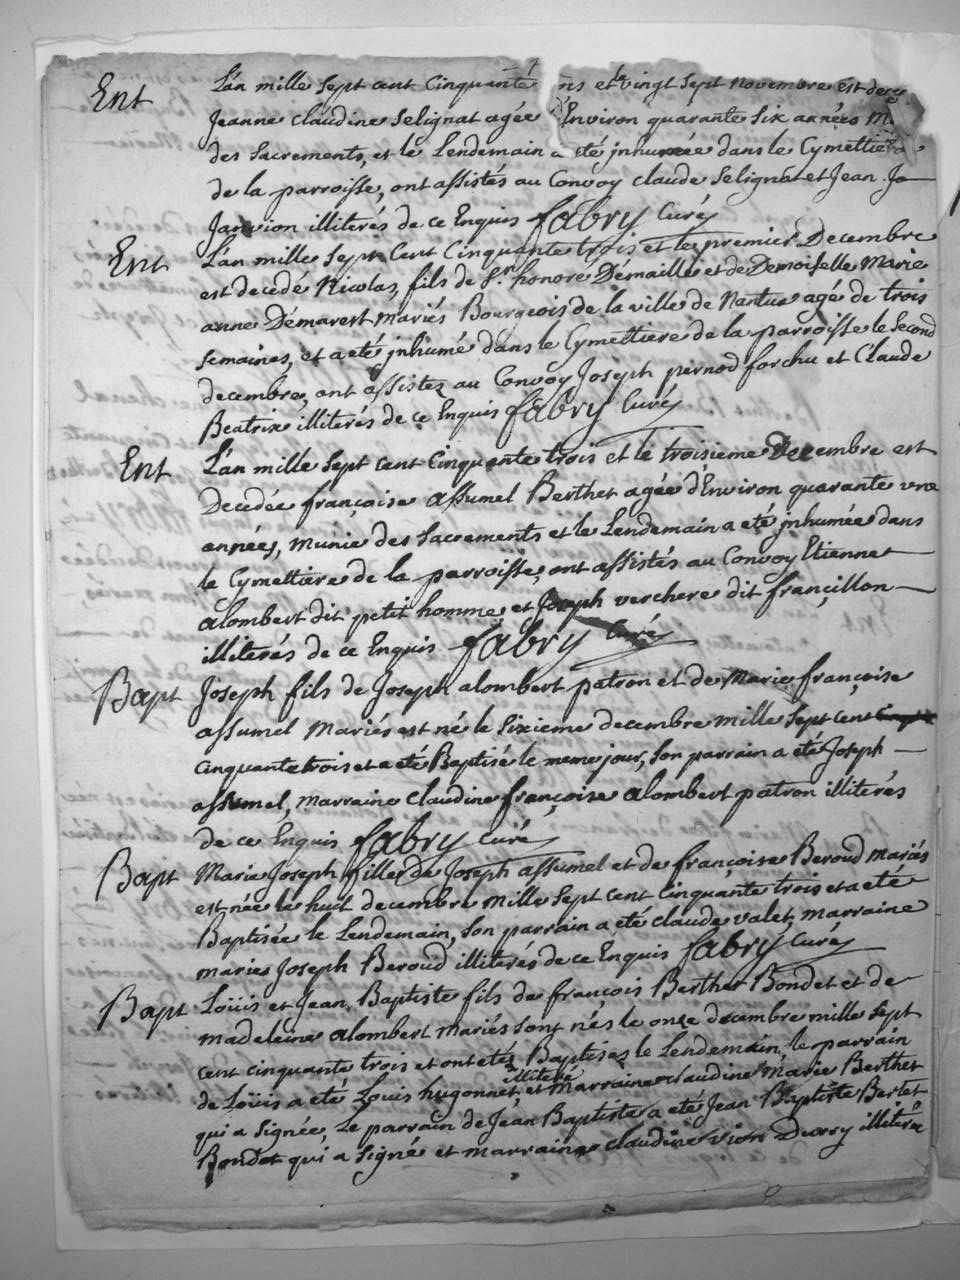 Ent L'an mille sept cent Cinquante ns et le vingt sept novembre est
Jeanne claudine Selignat agée d'Environ quarante six années
des sacrements, et le Lendemain a été jnhumée dans le Cymettiere
de la parroisse, ont assistés au Convoy claude Selignat et Jean Jo
Janvion illiterés de ce Enquis fabry Curé
Ent L'an mille sept Cent Cinquante trois et le premier Decembre
est decedé Nicolas, fils de Sr. honoré Démaille et de Demoiselle Marie
anne Démarest mariés Bourgeois de la ville de Nantua agé de trois
semaines, et a eté jnhumé dans le Cymettiere de la parroisse le second
decembre, ont assistez au Convoy Joseph pernod forchu et Claude
Beatrix illiterés de ce Enquis fabry Curé
Ent L'an mille sept cent cinquante trois et le troisieme Decembre est
Decedée françoise assumel Berthet agée d'Environ quarante une
années, munie des sacrements et le Lendemain a eté jnhumée dans
le Cymettiere de la parroisse, ont assistés au Convoy Etienne
alombert dit petit homme et Joseph verchere dit françillon
illiterés de ce Enquis fabry Curé
Bapt Joseph fils de Joseph alombert patron et de Marie françoise
assumel Mariés est né le sixieme decembre mille sept cent
cinquante trois et a eté Baptisé le meme jour, son parrain a eté Joseph
assumel, marraine Claudine françoise alombert patron illiterés
de ce Enquis fabry curé
Bapt Marie Joseph fille de Joseph assumel et de françoise Beroud mariés
est née le huit decembre mille sept cent Cinquante trois et a eté
Baptisée le Lendemain, son parrain a eté claude valet, marraine
marie Joseph Beroud illiterés de ce Enquis fabry curé
Bapt Loüis et Jean Baptiste fils de francois Berthet Bondet et de
madeleine alombert mariés sont nés le onze decembre mille sept
cent cinquante trois et ont etéz Baptisez le Lendemain, le parrain
de Loüis a eté Louis hugonnet illiteré et marraine claudine Marie Berthet
qui a signée, Le parrain de Jean Baptiste a eté Jean Baptiste Bertet
Bondet qui a signé et marraine claudine vion Ducry illiterée